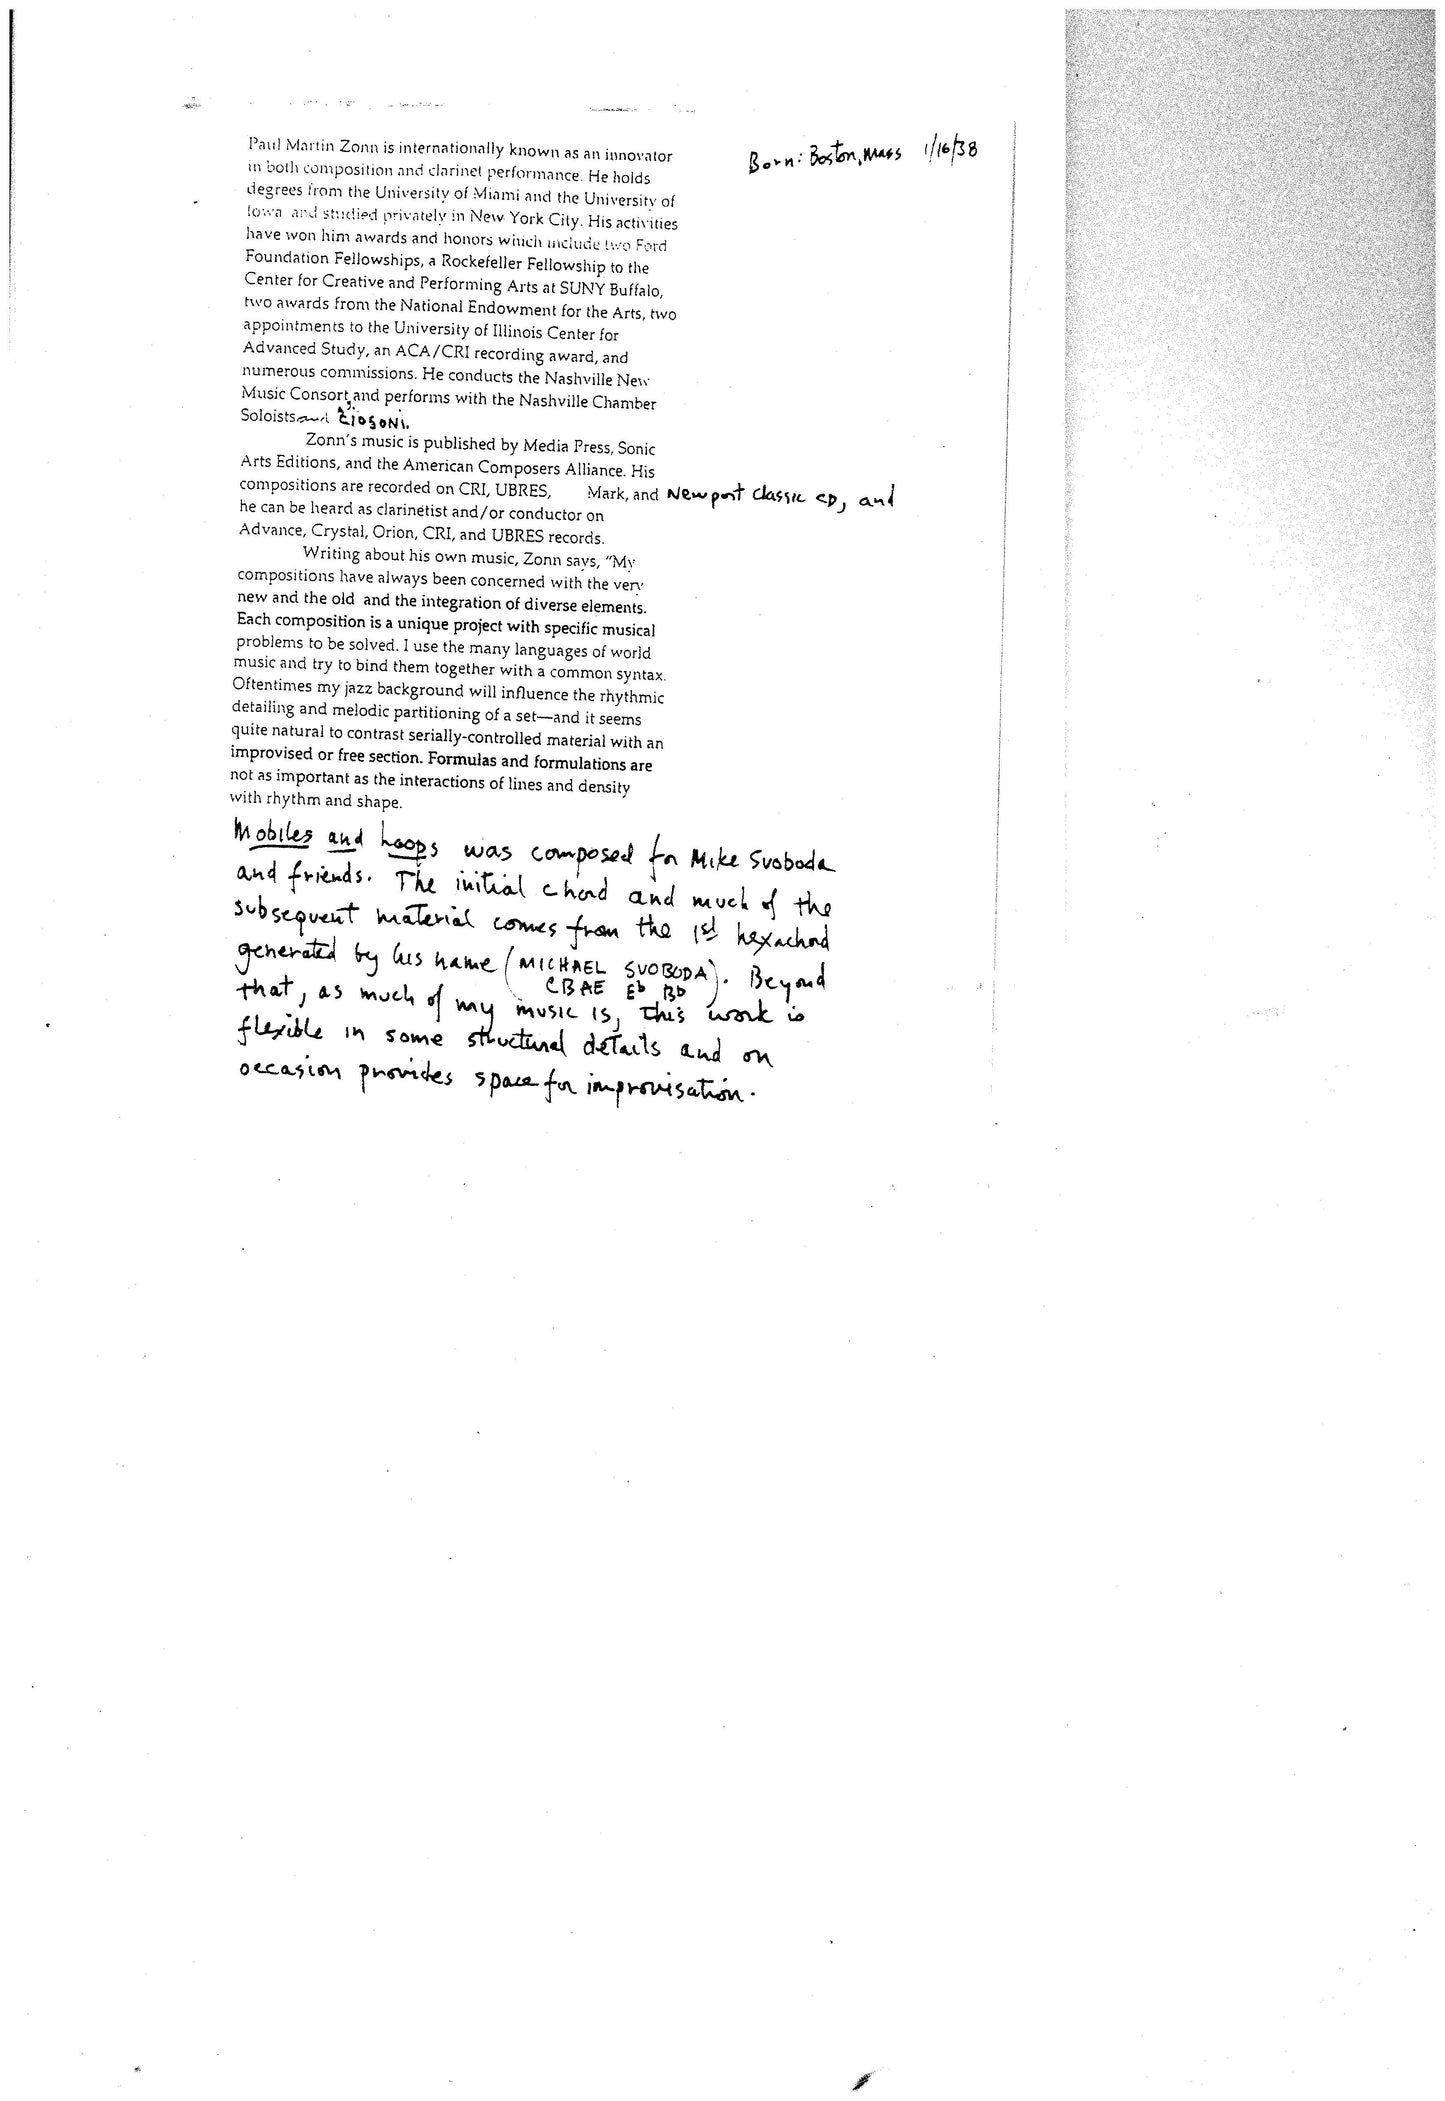 Born: Boston, Mass 1/16/38
Paul Martin Zonn is internationally known as an innovator
in both composition and clarinet performance. He holds
degrees from the University of Miami and the University of
Iowa and studied privately in New York City. His activities
have won him awards and honors which include two Ford
Foundation Fellowships, a Rockefeller Fellowship to the
Center for Creative and Performing Arts at SUNY Buffalo,
two awards from the National Endowment for the Arts, two
appointments to the University of Illinois Center for
Advanced Study, an ACA/CRI recording award, and
numerous commissions. He conducts the Nashville New
Music Consort, and performs with the Nashville Chamber
Soloists and
Zonn's music is published by Media Press, Sonic
Arts Editions, and the American Composers Alliance. His
compositions are recorded on CRI, UBRES, Mark, and Newport Classic CD, and
he can be heard as clarinetist and/or conductor on
Advance, Crystal, Orion, CRI, and UBRES records.
Writing about his own music, Zonn says, "My
compositions have always been concerned with the very
new and the old and the integration of diverse elements.
Each composition is a unique project with specific musical
problems to be solved. I use the many languages of world
music and try to bind them together with a common syntax.
Oftentimes my jazz background will influence the rhythmic
detailing and melodic partitioning of a set—and it seems
quite natural to contrast serially-controlled material with an
improvised or free section. Formulas and formulations are
not as important as the interactions of lines and density
with rhythm and shape.
Mobiles and hoops was composed for Mike Svoboda
and friends. The initial chord and much of the
subsequent material comes from the 1st hexachord
generated by his name (MICHAEL SVOBODA). Beyond
CBAE Eb Bb
that, as much of my music is, this work is
flexible in some structural details and on
occasion provides space for improvisation.